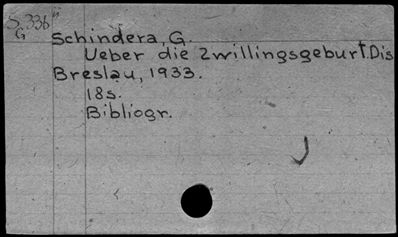 S. 336
G
Schindera, G.
Ueber die Zwillingsgeburt. Dis
Breslau, 1933.
18s.
Bibliogr.